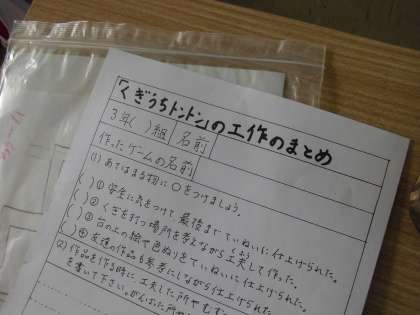 「くぎうちトントン」の工作のまとめ
3年( )組 名前
作ったゲームの名前
(1) あてはまる物に○をつけましょう。
( )① 安全に気をつけて、最後までていねいに仕上げられた。
( )② くぎを打つ場所を考えながら工夫して作った。
( )③ 台の上の絵や色ぬりをていねいに仕上げられた。
( )④ 友達の作品も参考にしながら仕上げられた。
(2) 作品を作る時に、工夫した所やむず
を書いて下さい。がんばった所